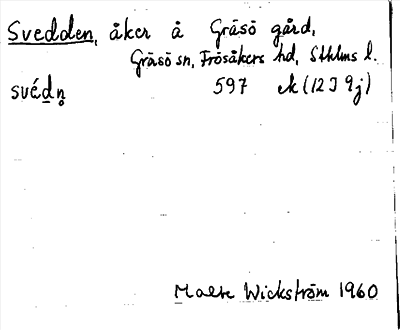 Svedden, åker å Gräsö gård,
Gräsö sn, Frösåkers hd, Sthlms l.
svédn̥ 597 ek (12 I 9j)
Märta Wickström 1960